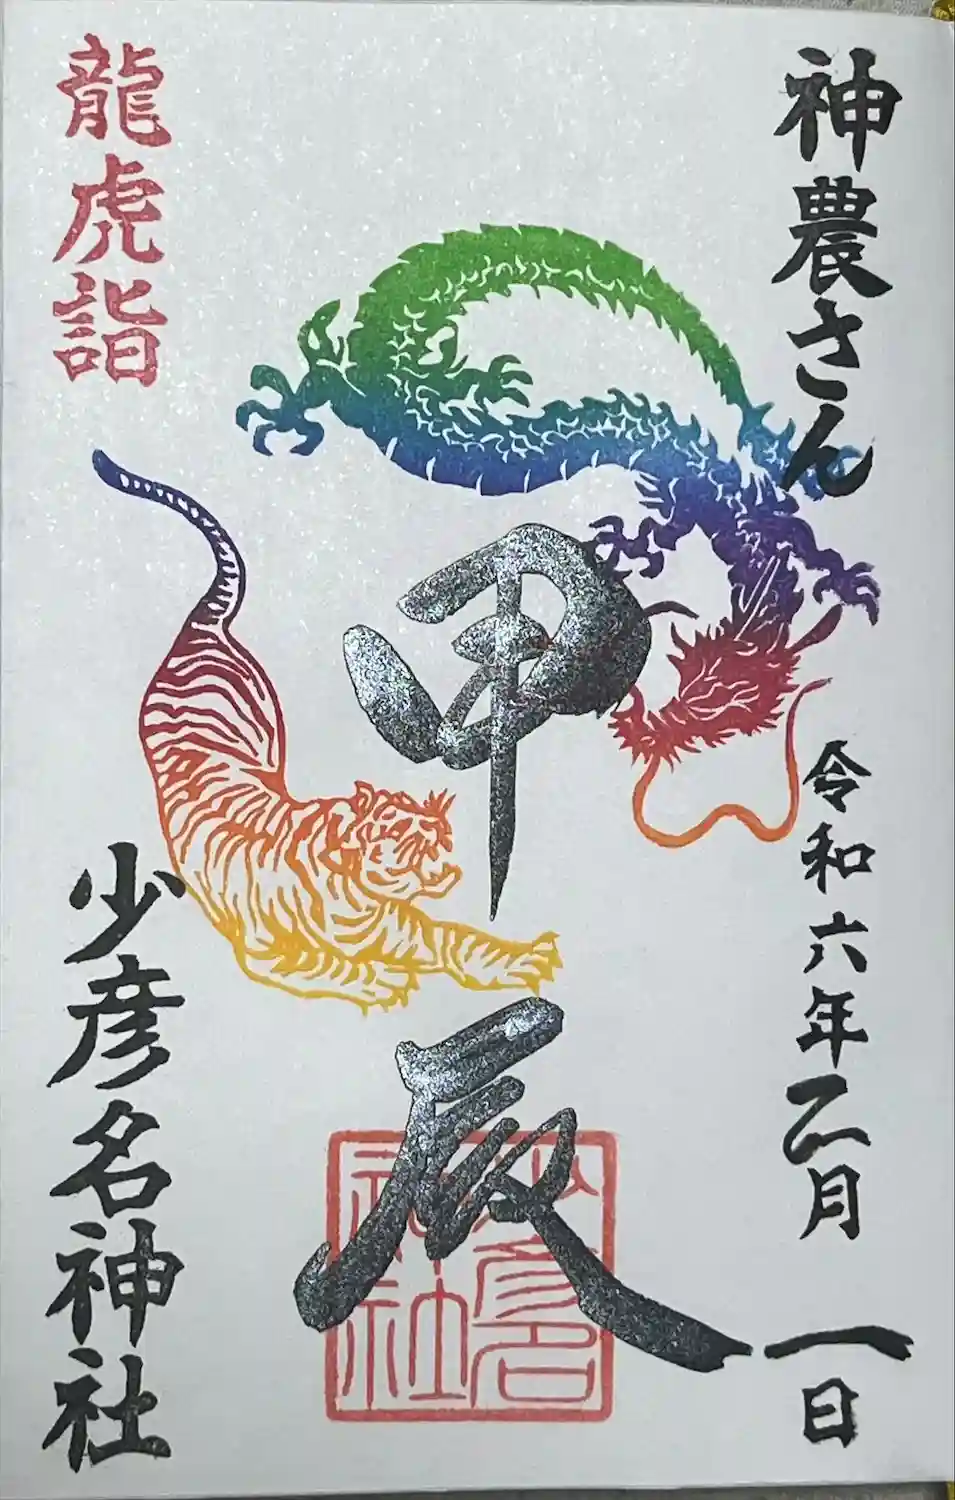 神農さん
令和六年二月一日
甲辰
龍虎詣
少彦名神社
少彦名神社